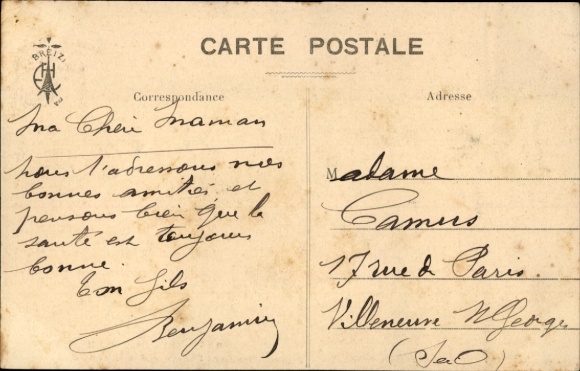 BREIZ
CARTE POSTALE
Correspondance
Adresse
Ma Chère Maman
nous t'adressons nos
bonnes amitiés et
pensons bien que la
santé est toujours
bonne.
Ton fils
Benjamin
Madame
Camus
17 rue de Paris.
Villeneuve St Georges
(S et O)